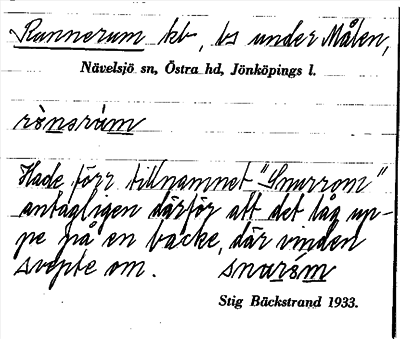 Rannerum kb, ls under Målen,
Nävelsjö sn, Östra hd, Jönköpings l.
rònsrùm
Hade förr tillnamnet "Snurrom"
antagligen därför att det låg up-
pe på en backe, där vinden
svepte om. snuròm
Stig Bäckstrand 1933.